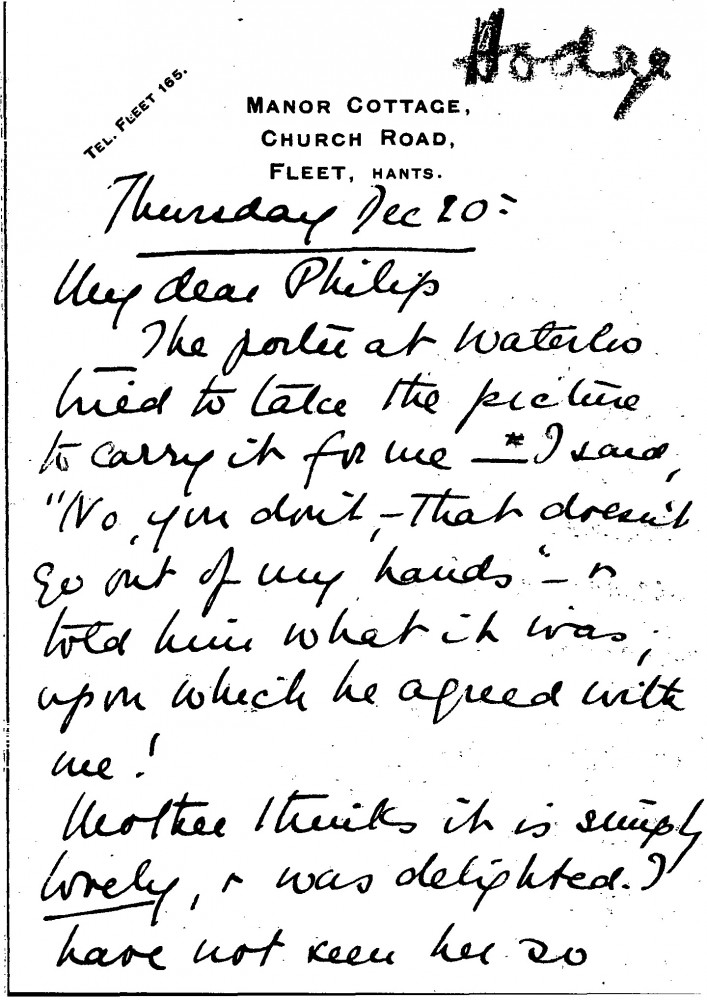 Hodge
TEL. FLEET 165.
MANOR COTTAGE,
CHURCH ROAD,
FLEET, HANTS.
Thursday Dec 20=
My dear Philip
The porter at Waterloo
tried to take the picture
to carry it for me —* I said,
"No, you don't, – that doesn't
go out of my hands" – &
told him what it was,
upon which he agreed with
me!
Mother thinks it is simply
lovely, & was delighted. I
have not seen her so